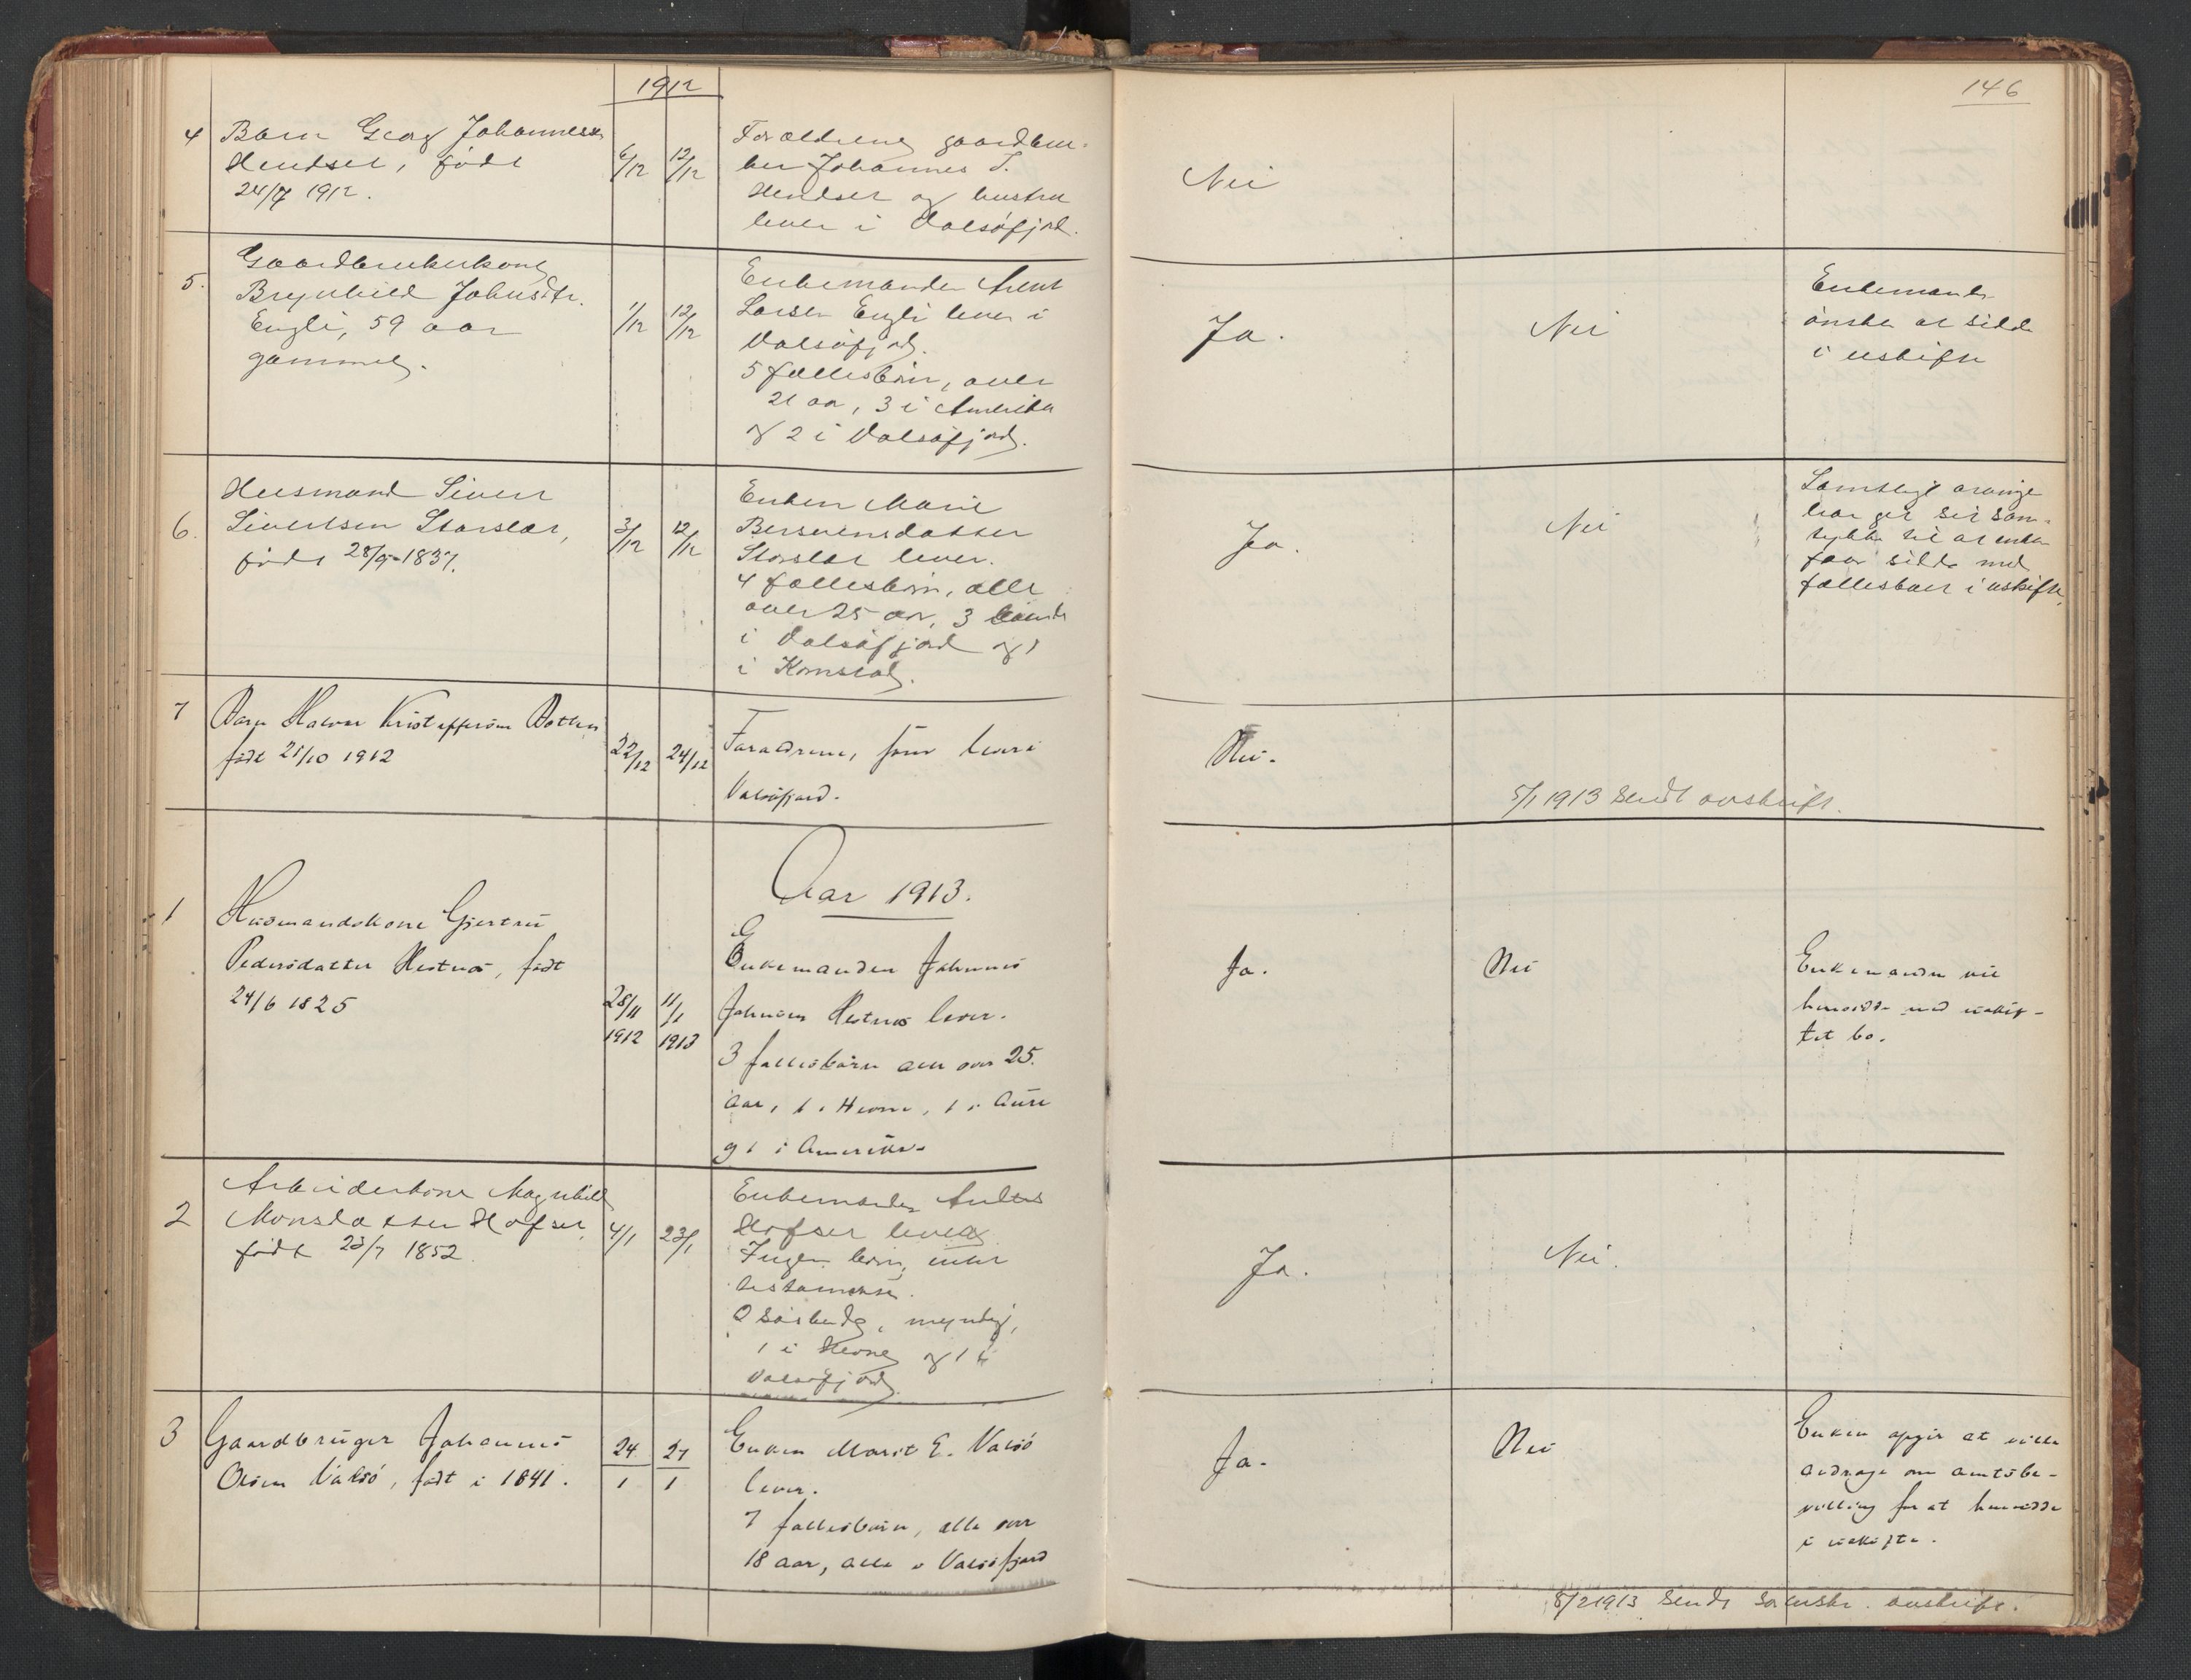 1912
146
4 Barn Georg Johannesen
Hendset, født
24/7 1912.
6/12 12/12
Forældrene gaardbru-
ker Johannes T.
Hendset og hustru
lever i Valsøfjord.
Nei
5. Gaardbrukerkone
Brynhild Johnsdtr.
Engli, 59 aar
gammel.
1/12 12/12
Enkemanden Arent
Larsen Engli lever i
Valsøfjord.
5 fællesbørn, over
21 aar, 3 i Amerika
og 2 i Valsøfjord.
Ja.
Nei
Enkemanden
ønsker at sidde
i uskifte
6. Husmand Sivert
Sivertsen Storslæt,
født 28/9-1837.
3/12 12/12
Enken Marie
Bersvensdatter
Storslæt lever.
4 fællesbørn, alle
over 25 aar, 3 boende
i Valsøfjord og 1
i Kornstad.
Ja.
Nei
Samtlige arvinger
har git sit sam-
tykke til at enken
faar sidde med
fællesboet i uskifte.
7 Barn Halvor Kristoffersen Botten
født 21/10 1912
22/12 24/12
Forældrene, som lever i
Valsøfjord.
Nei.
5/1 1913 sendt avskrift.
Aar 1913.
1 Husmandskone Gjertru
Pedersdatter Hestnes, født
24/6 1825
28/11 1912 11/1 1913
Enkemanden Johannes
Johnsen Hestnes lever.
3 fællesbørn alle over 25
aar, 1 i Hevne, 1 i Aure
og 1 i Amerika.
Ja.
Nei
Enkemanden vil
hensidde med uskif-
tet bo.
2 Arbeiderkone Magnhild
Monsdatter Hofset,
født 23/7 1852
4/1 23/1
Enkemanden Anders
Hofset lever
Ingen børn, intet
testamente.
2 søskende, myndig,
1 i Hevne og 1 i
Valsøfjord.
Ja.
Nei.
3 Gaardbruger Johannes
Olsen Valsø, født i 1841.
24/1 27/1
Enken Marit E. Valsø
lever.
7 fællesbørn, alle over
18 aar, alle i Valsøfjord
Ja.
Nei
Enken opgir at ville
andrage om amtsbe-
villing for at hensidde
i uskifte.
8/2 1913 Sendt avskrift.